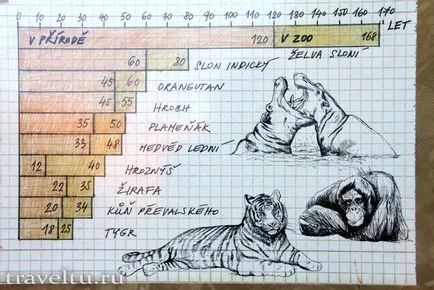 0 10 20 30 40 50 60 70 80 90 100 110 120 130 140 150 160 170 LET
V PŘÍRODĚ 120 V ZOO 168
ŽELVA SLONÍ
60 80 SLON INDICKÝ
45 60 ORANGUTAN
45 55 HROCH
35 50 PLAMEŇÁK
33 48 MEDVĚD LEDNÍ
12 40 HROZNÝŠ
22 35 ŽIRAFA
20 34 KŮŇ PŘEVALSKÉHO
18 25 TYGR
traveltu.ru